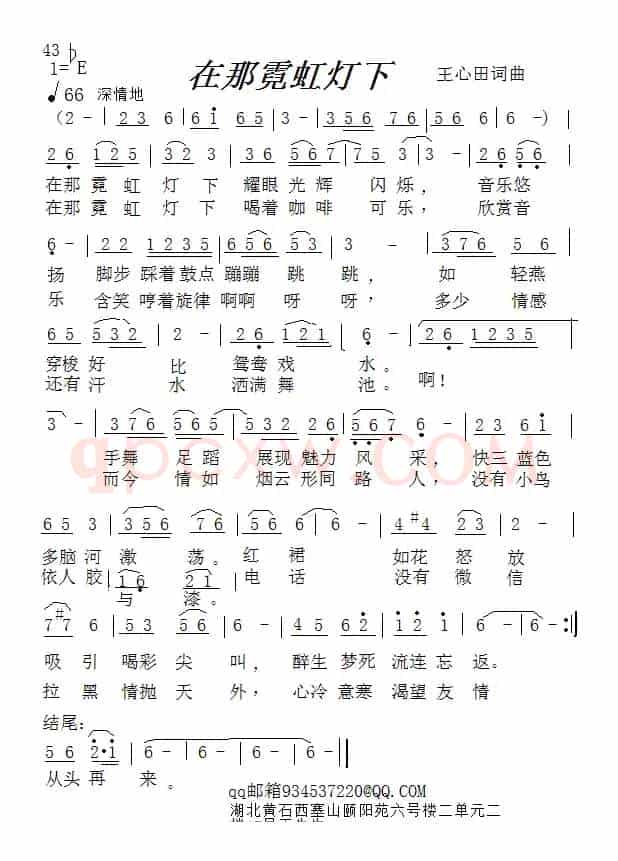 43
1=♭E
在那霓虹灯下 王心田词曲
66 深情地
(2 - | 2 3 6 | 6 i | 6 5 | 3 - | 3 5 6 | 7 6 | 5 6 | 6 -) |
2 6 | 1 2 5 | 3 2 3 | 3 6 | 5 6 7 | 7 3 5 | 3 - | 2 6 5 6 |
在那 霓 虹 灯 下 耀眼 光 辉 闪 烁, 音乐悠
在那 霓 虹 灯 下 喝着 咖 啡 可 乐, 欣赏音
6 - | 2 2 | 1 2 3 5 | 6 6 | 5 3 5 | 3 - | 3 7 6 | 5 6 |
扬 脚步 踩着鼓点 蹦蹦 跳 跳, 如 轻燕
乐 含笑 哼着旋律 啊啊 呀 呀, 多少 情感
6 5 5 3 2 | 2 - | 2 6 1 2 1 | 6 - | 2 6 1 2 3 5 |
穿梭 好 比 鸳鸯 戏 水。
还有 汗 水 洒满 舞 池。 啊!
3 - | 3 7 6 | 5 6 5 | 5 3 2 2 6 | 5 6 7 | 6 - | 2 3 6 i |
手舞 足 蹈 展现 魅力 风 采, 快三 蓝色
而今 情 如 烟云 形同 路 人, 没有 小鸟
qpcxw.COM
6 5 3 | 3 5 6 | 7 6 | 5 6 | 2 1 | 6 - | 4 #4 | 2 1 |
多脑 河 激 荡。 红 裙 如花 怒 放
依人 胶 1 6 2 1 电 话 没有 微 信
与 漆。
7 #7 6 | 6 5 3 | 5 3 | 6 - | 4 5 6 2 | 1 2 2 | 6 - :||
吸 引 喝彩 尖 叫, 醉生 梦死 流连 忘 返。
拉 黑 情抛 天 外, 心冷 意寒 渴望 友 情
结尾:
5 6 2·1 | 6 - | 6 - | 6 - | 6 - ||
从头 再 来。
qq邮箱934537220@QQ.COM
湖北黄石西塞山颐阳苑六号楼二单元二